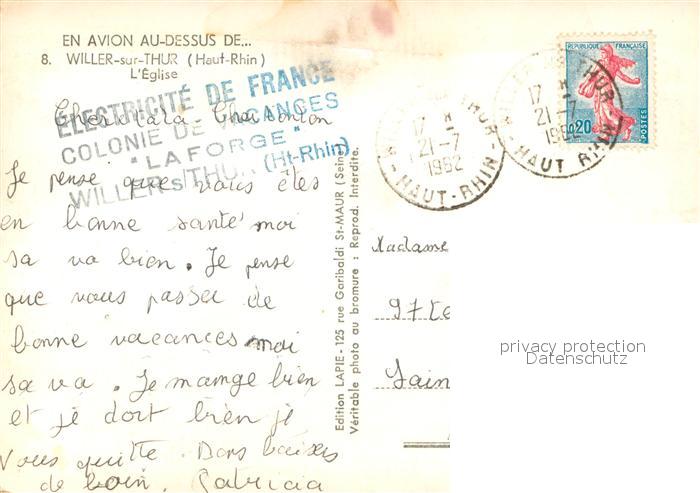 EN AVION AU-DESSUS DE...
8. WILLER-sur-THUR (Haut-Rhin)
L'Église
ÉLECTRICITÉ DE FRANCE
COLONIE DE VACANCES
"LAFORGE"
WILLER s/ THUR (Ht-Rhin)
Je pense que vous êtes
en bonne santé moi
sa va bien. Je pense
que vous passer de
bonne vacances moi
sa va. Je mamge bien
et je dort bien je
vous quitte. Bons baisers
de loin. Patricia
Edition LAPIE - 125 rue Garibaldi St-MAUR (Seine)
Véritable photo au bromure : Reprod. Interdite.
THUR
17 H
21-7
1962
HAUT-RHIN
THUR
17 H
21-7
1962
HAUT RHIN
REPUBLIQUE FRANÇAISE
0,20
POSTES
Madame
97
Sain
privacy protection
Datenschutz